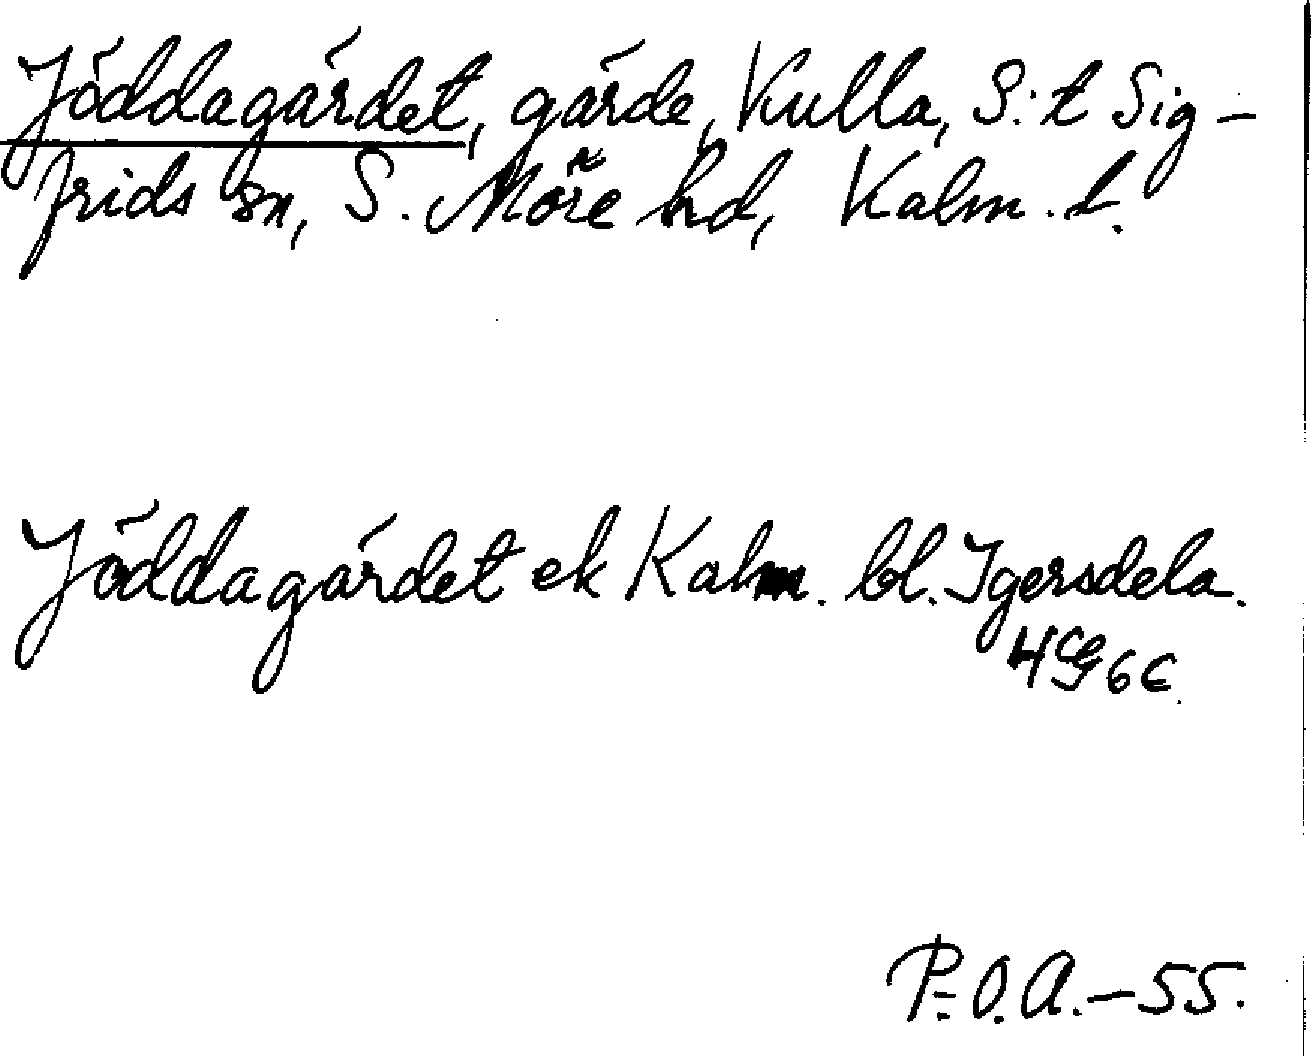 Jöddagärdet, gärde, Kulla, S:t Sig-
frids sn, S. Möre hd, Kalm. l.
Jöddagärdet ek Kalm. bl. Igersdela.
4G6c.
P.O.A.-55.